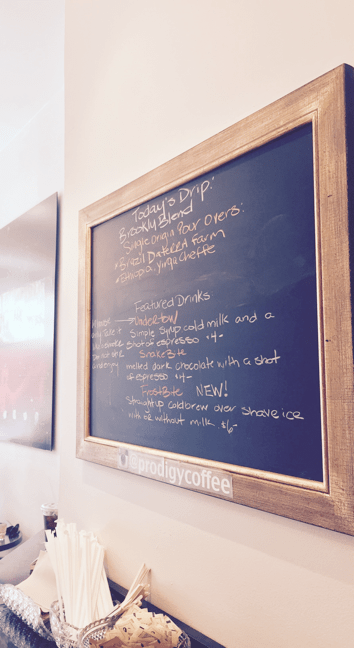 Today's Drip:
Brooklyn Blend
Single Origin Pour Overs:
Brazil Daterra Farm
Ethiopia, Yirgacheffe
Featured Drinks
Undertow
Simple Syrup cold milk and a
shot of espresso $4-
SnakeBite
melted dark chocolate with a shot
of espresso $4-
FrostBite NEW!
Straight up cold brew over shave ice
with or without milk $6-
@prodigycoffee